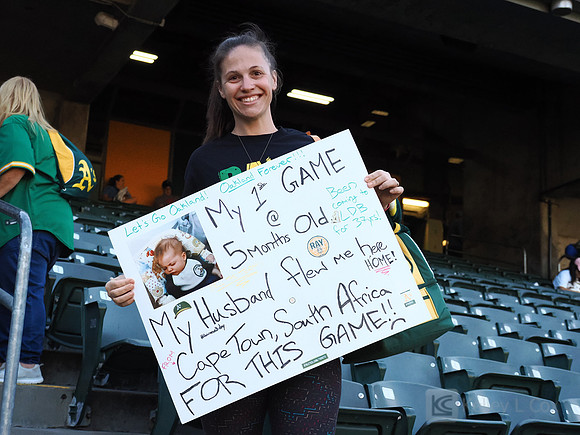 Let's Go Oakland! Oakland Forever!!!
My 1st GAME
@
5 Months Old
Been
coming to
LDB
for 37yrs!
RAY
My Husband flew me here
HOME!
Cape Town, South Africa
FOR THIS GAME!!
A's